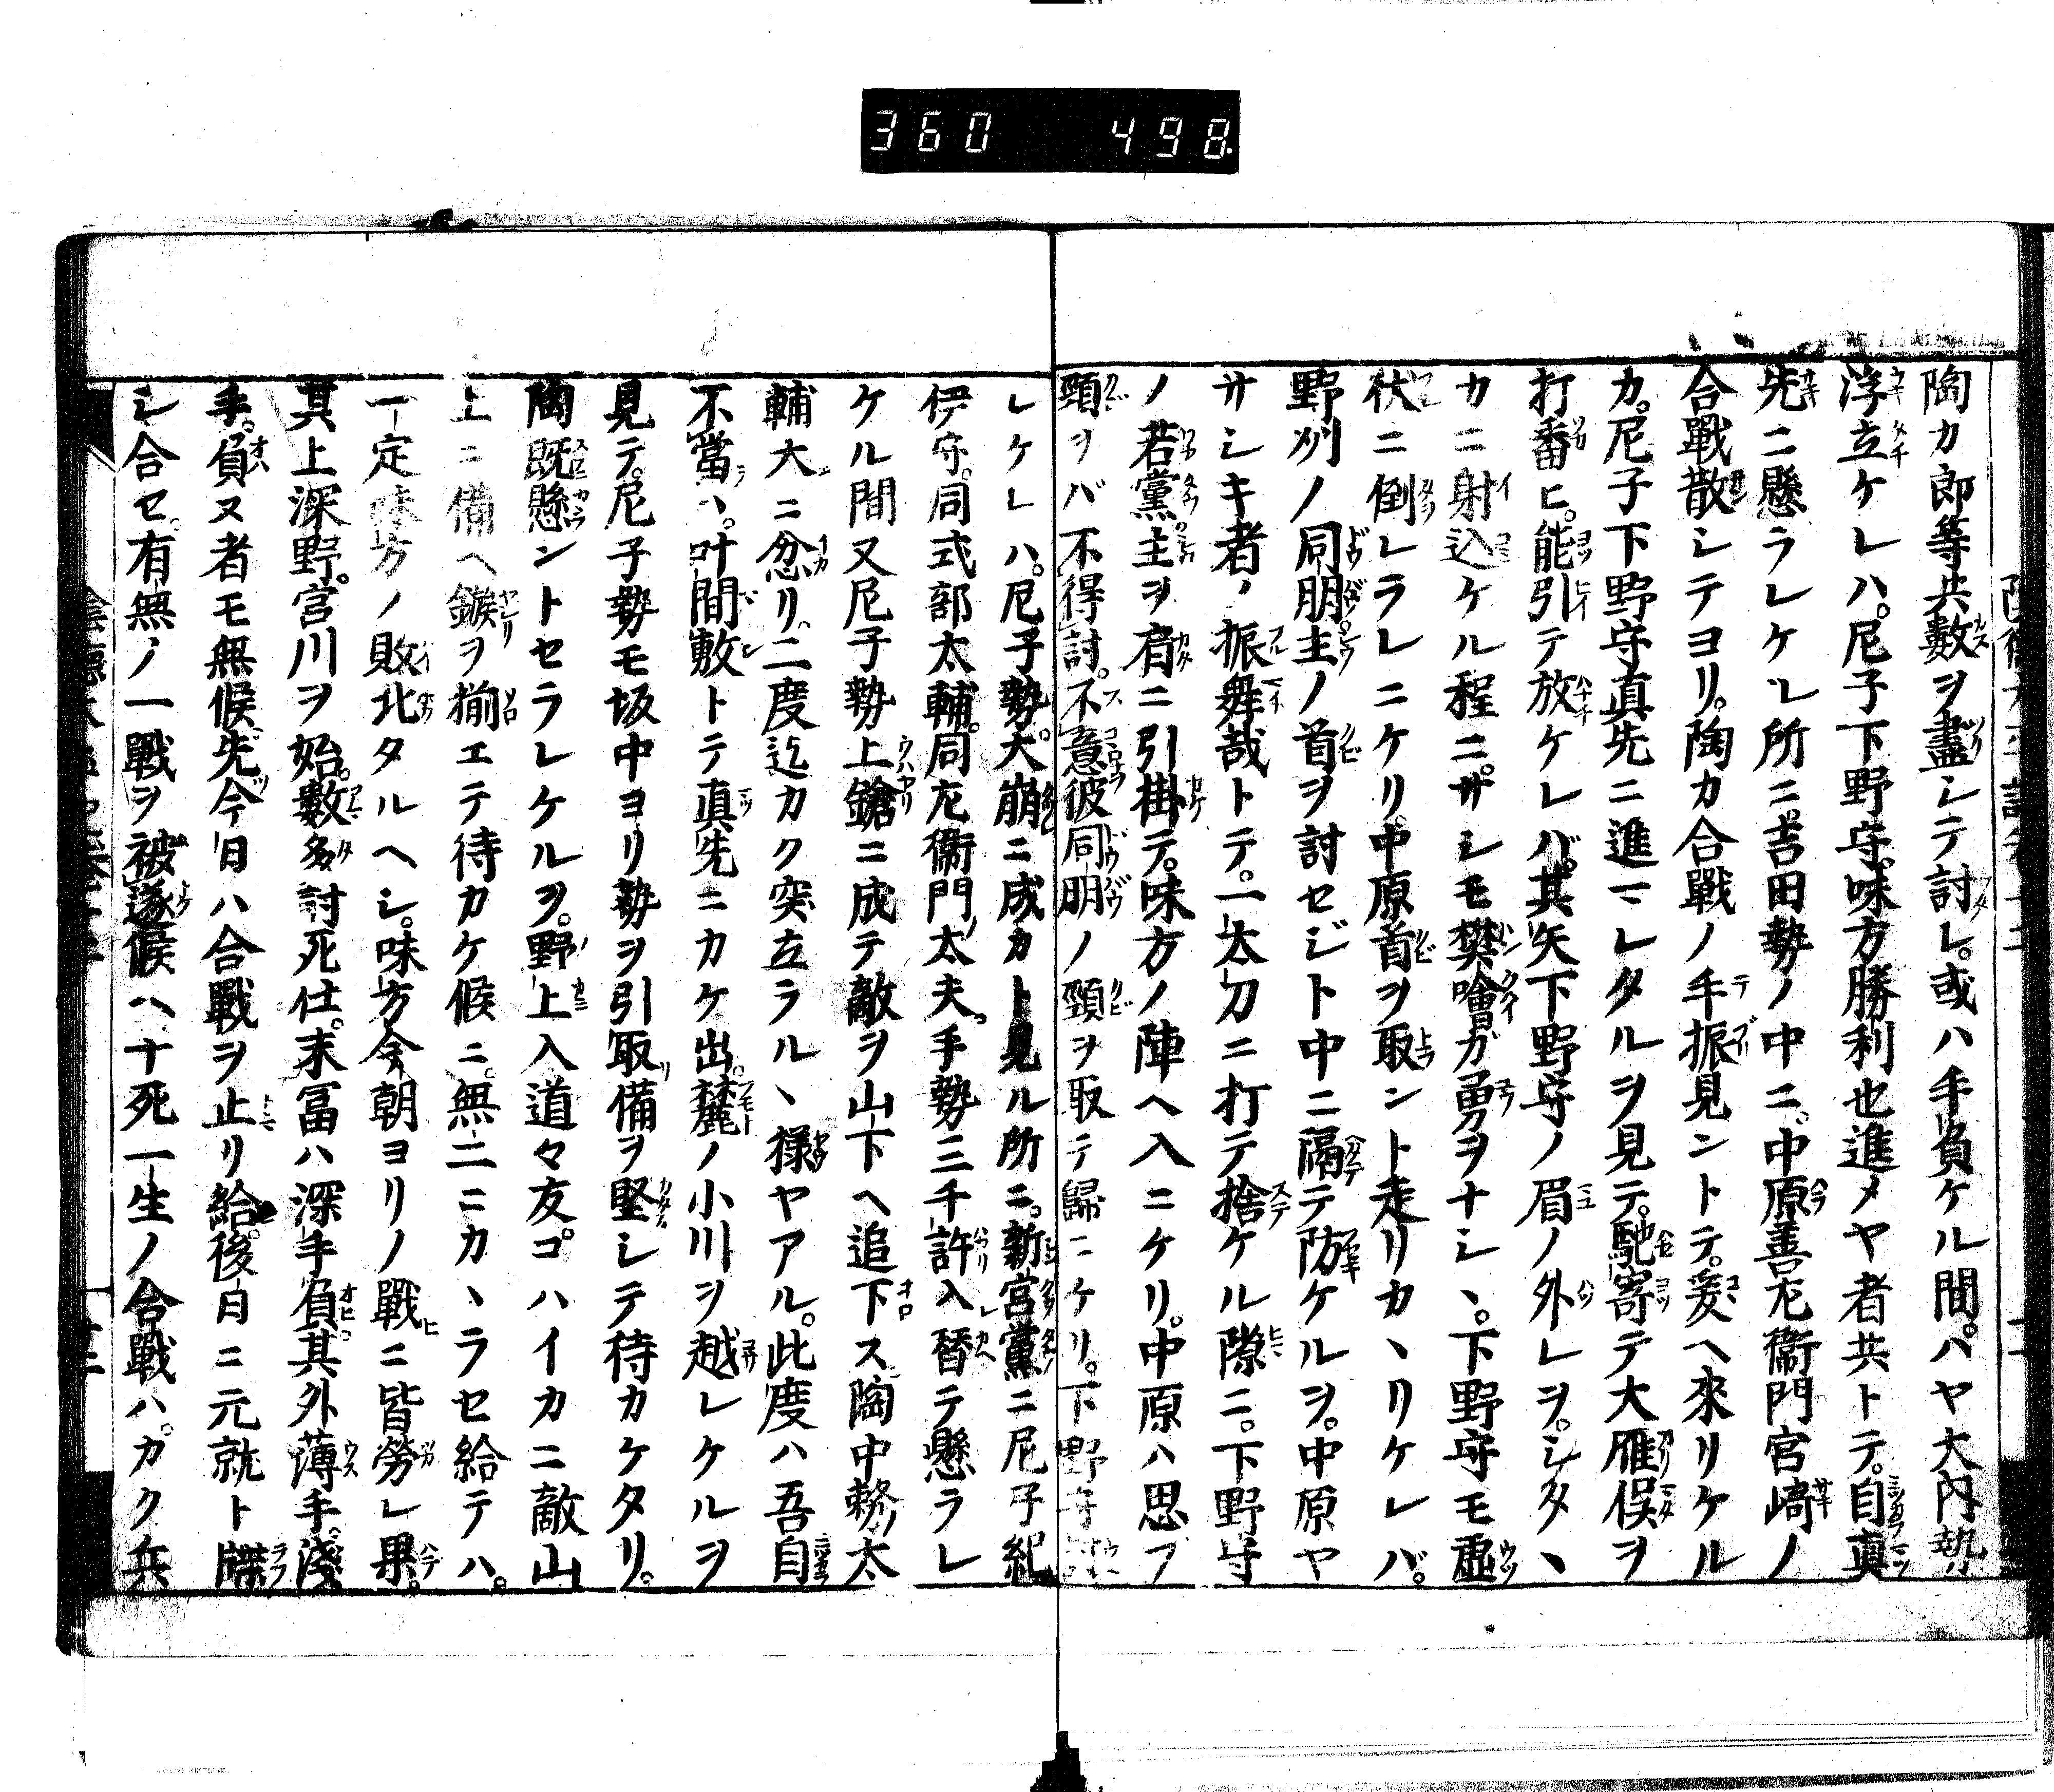 360 498
陶カ郎等共數ヲ盡シテ討レ。或ハ手負ケル間。ハヤ大内勢
浮立ケレハ。尼子下野守。味方勝利也進メヤ者共トテ。自真
先ニ懸ラレケル所ニ。吉田勢ノ中ニ。中原善左衞門宮崎ノ
合戰散シテヨリ。陶カ合戰ノ手振見ントテ。爰ヘ來リケル
カ。尼子下野守真先ニ進マレタルヲ見テ。馳寄テ大雁俣ヲ
打番ヒ。能引テ放ケレバ。其矢下野守ノ眉ノ外レヲ。シタヽ
カニ射込ケル程ニ。サシモ樊噲ガ勇ヲナシヽ。下野守モ虚
伏ニ倒レラレニケリ。中原首ヲ取ント走リカヽリケレバ。
野刕ノ同朋。主ノ首ヲ討セジト中ニ隔テ防ケルヲ。中原ヤ
サシキ者ノ振舞哉トテ。一太刀ニ打テ捨ケル隙ニ。下野守
ノ若黨。主ヲ肩ニ引掛テ。味方ノ陣ヘ入ニケリ。中原ハ思フ
頸ヲバ不得討。不意彼同朋ノ頸ヲ取テ歸ニケリ。下野守
レケレハ。尼子勢。大崩ニ成カト見ル所ニ。新宮黨ニ尼子紀
伊守。同式部太輔。同左衞門太夫。手勢三千許入替テ懸ラレ
ケル間又尼子勢上鎗ニ成テ敵ヲ山下ヘ追下ス陶中務太
輔大ニ忿リ。二度迄カク突立ラルヽ樣ヤアル。此度ハ吾自
不當ハ。叶間敷トテ真先ニカケ出。麓ノ小川ヲ越レケルヲ
見テ。尼子勢モ坂中ヨリ勢ヲ引取備ヲ堅シテ待カケタリ。
陶既懸ントセラレケルヲ。野上入道々友。コハイカニ敵山
上ニ備ヘ鏃ヲ揃エテ待カケ候ニ。無二ニカヽラセ給テハ。
一定味方ノ敗北タルヘシ。味方今朝ヨリノ戰ニ皆勞レ果。
其上深野。宮川ヲ始。數多討死仕。末冨ハ深手負其外薄手。淺
手。負ヌ者モ無候。先今日ハ合戰ヲ止リ給。後日ニ元就ト牒
シ合セ。有無ノ一戰ヲ被遂候ヘ十死一生ノ合戰ハ。カク兵